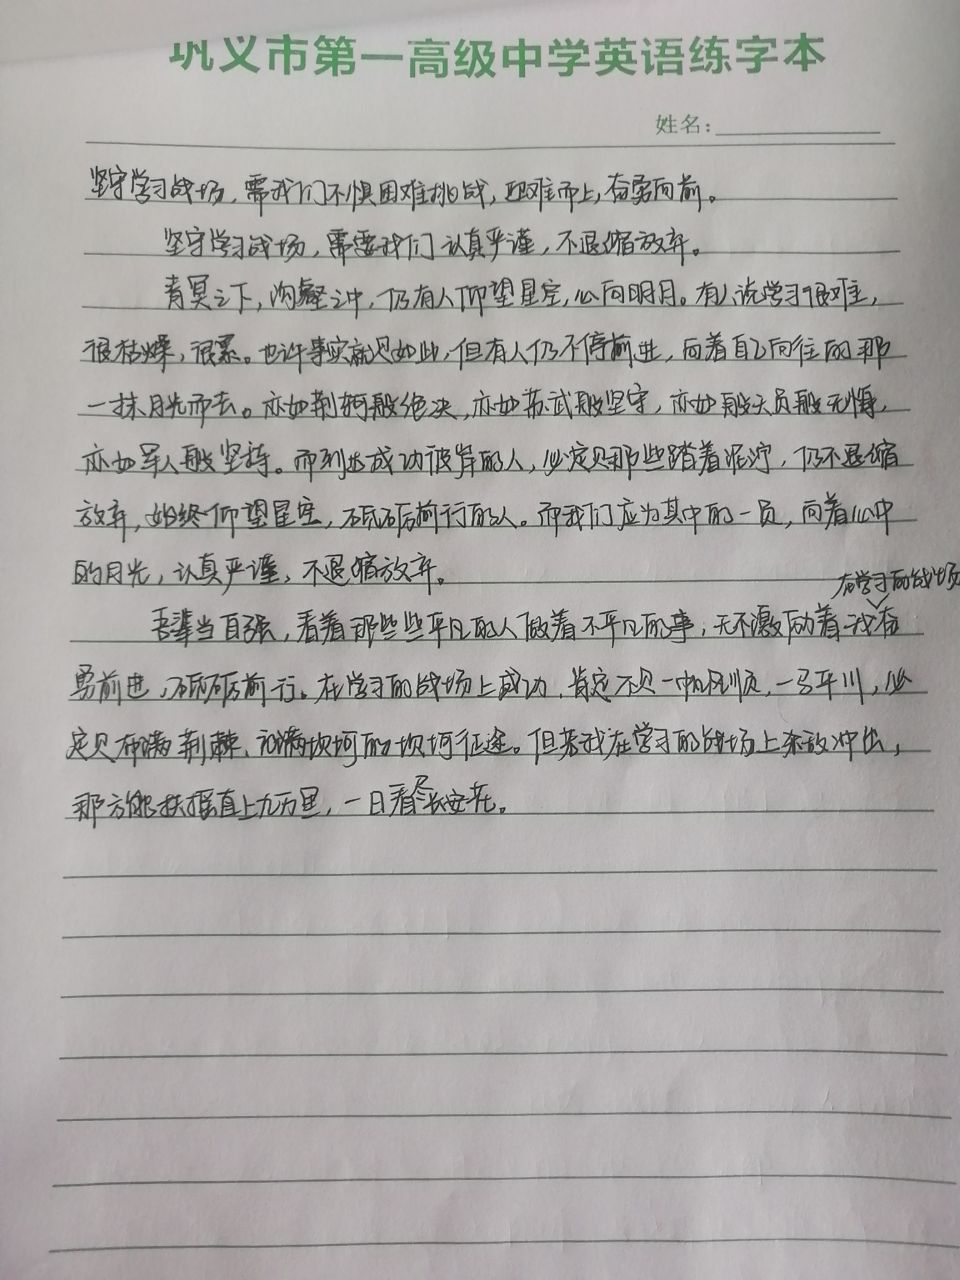 巩义市第一高级中学英语练字本
姓名：
坚守学习战场，需我们不惧困难挑战，迎难而上，奋勇向前。
坚守学习战场，需要我们认真严谨，不退缩放弃。
青冥之下，沟壑之中，仍有人仰望星空，心向明月。有人说学习很难，
很枯燥，很累。也许事实就是如此，但有人仍不停前进，向着自己向往的那
一抹月光而去。亦如荆轲般绝决，亦如苏武般坚守，亦如般天员般无惧，
亦如军人般坚持。而到达成功彼岸的人，必定是那些踏着泥泞，仍不退缩
放弃，始终仰望星空，砥砺前行的人。而我们应为其中的一员，向着心中
的月光，认真严谨，不退缩放弃。
在学习的战场
吾辈当自强，看着那些些平凡的人做着不平凡的事，无不激励着我奋
勇前进，砥砺前行。在学习的战场上成功，肯定不是一帆风顺，一马平川，必
定是布满荆棘、沟满坎坷的坎坷征途。但若我在学习的战场上杀敌冲出，
那方能扶摇直上九万里，一日看尽长安花。